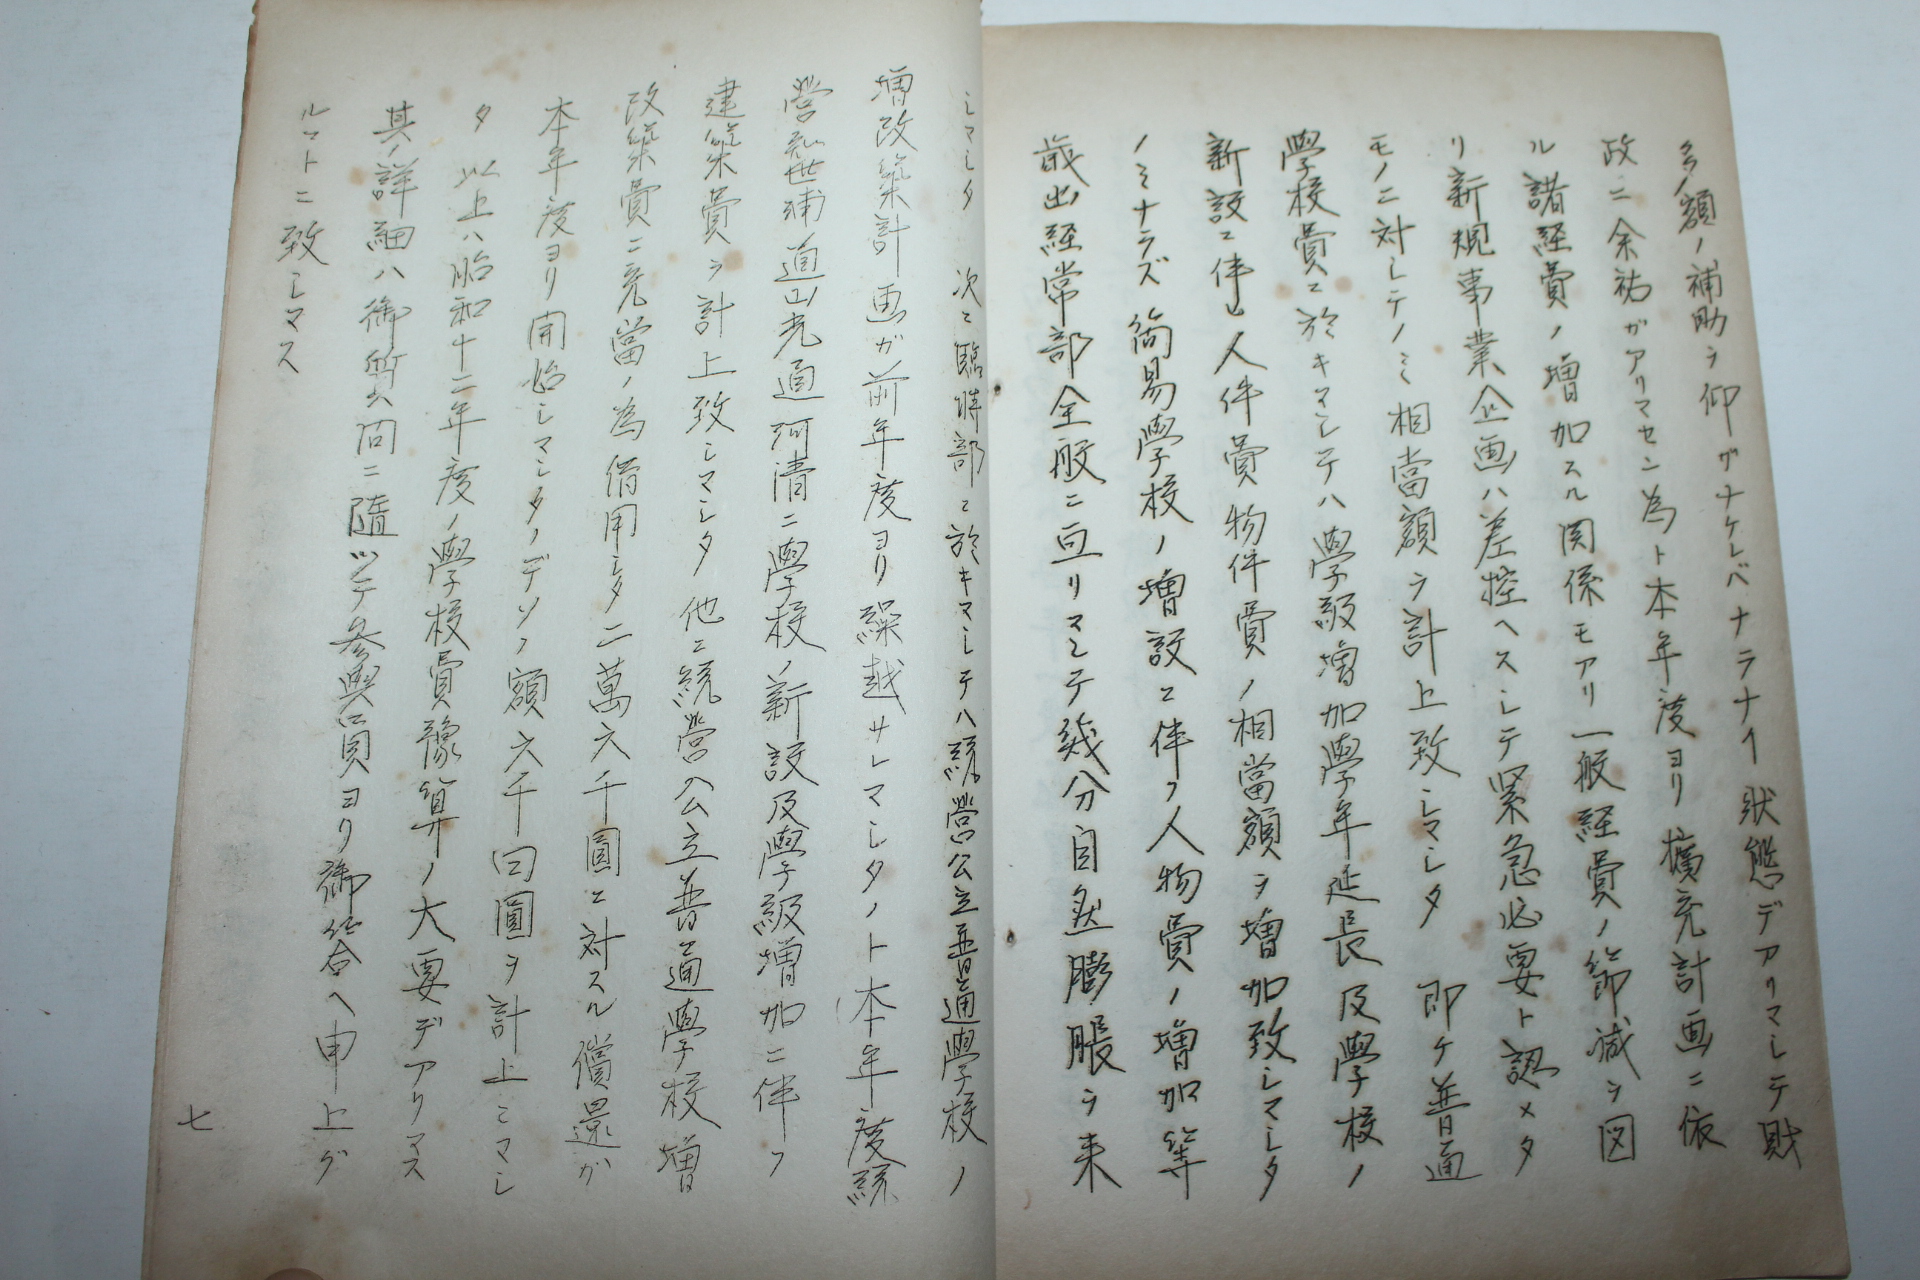 多額ノ補助ヲ仰ガナケレバナラナイ狀態デアリマシテ財
政ニ余祐ガアリマセン為ト本年度ヨリ擴充計画ニ依
ル諸経費ノ増加スル関係モアリ一般経費ノ節減ヲ図
リ新規事業企画ハ差控ヘスシテ緊急必要ト認メタ
モノニ対シテノミ相當額ヲ計上致シマシタ 即ケ普通
學校費ニ於キマシテハ學級増加學年延長及學校ノ
新設ニ伴ヒ人件費物件費ノ相當額ヲ増加致シマシタ
ノミナラズ簡易學校ノ増設ニ伴フ人物費ノ増加等
歳出経常部全般ニ亘リマシテ幾分自然膨脹ヲ来
シマシタ 次ニ臨時部ニ於キマシテハ統營公立普通學校ノ
増改築計画ガ前年度ヨリ繰越サレマシタノト本年度統
營 道山光道河清ニ學校ノ新設及學級増加ニ伴フ
建築費ヲ計上致シマシタ他ニ統營公立普通學校増
改築費ニ充當ノ為借用シタ二萬六千圓ニ対スル償還ガ
本年度ヨリ開始シマシタノデソノ額六千 圓ヲ計上シマシ
タ 以上ハ昭和十二年度ノ學校費豫算ノ大要デアリマス
其ノ詳細ハ御質問ニ隨ッテ参與員ヨリ御答ヘ申上ゲ
ルコトニ致シマス
七